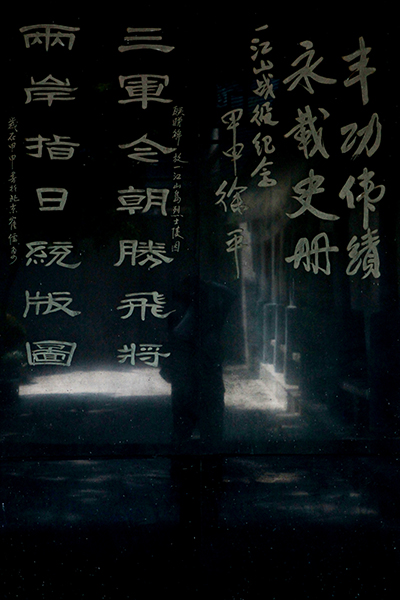 丰功伟績
永载史册
一江山战役纪念
甲申徐平
三軍今朝勝飛將
一江山岛烈士陵园
兩岸指日統版圖
岁在甲申书于北京